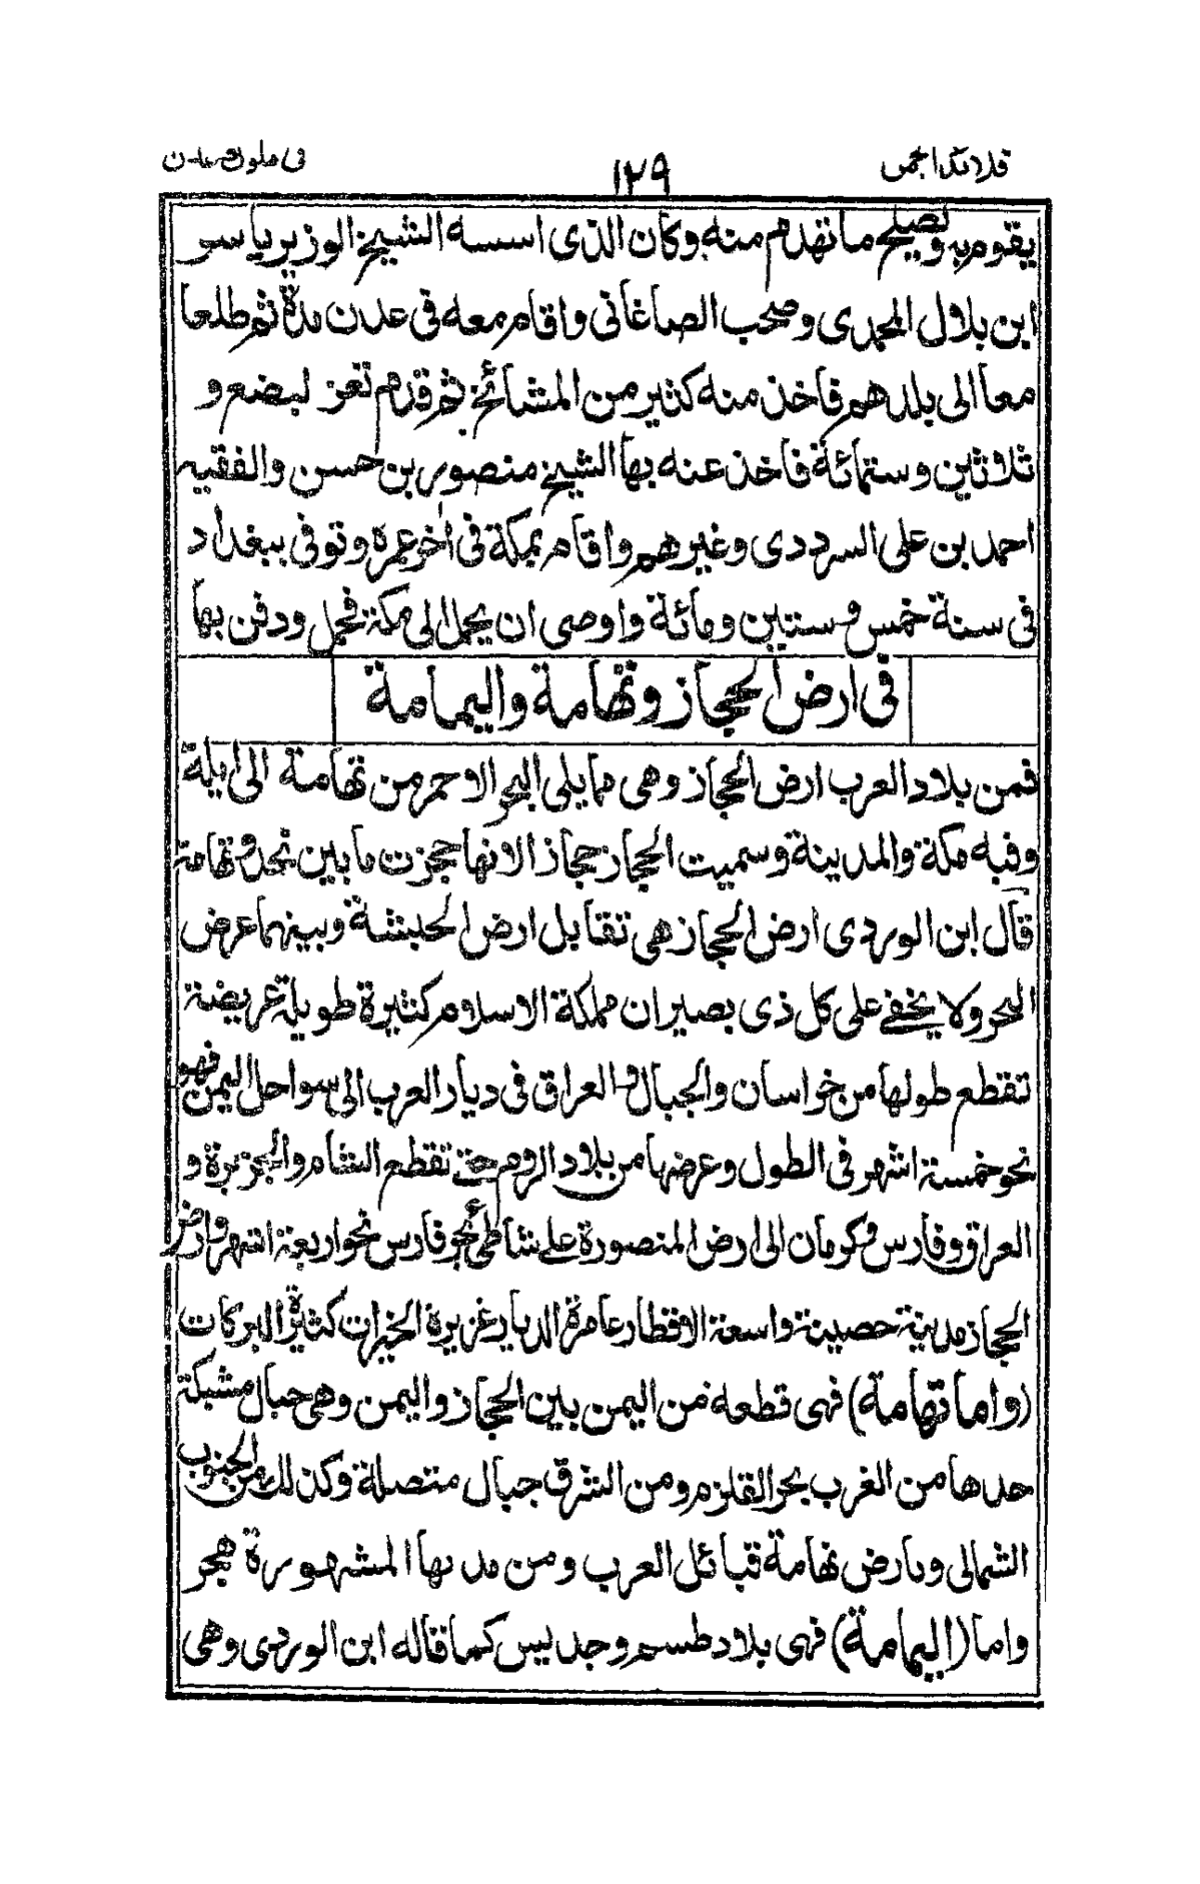 قلائد الجمن
١٢٩
فى ملوك عدن
يقوم به ويصلح ما تهدم منه وكان الذى اسسه الشيخ الوزير ياسر
ابن بلال المحمدى وصحب الصاغانى واقام معه فى عدن مدة ثم طلعا
معا الى بلدهم فاخذ منه كثير من المشائخ ثم قدم تعز لبضع و
ثلاثين وستمائة فاخذ عنه بها الشيخ منصور بن حسن والفقيه
احمد بن على السرددى وغيرهم واقام بمكة فى اخر عمره وتوفى ببغداد
فى سنة خمس وستين ومائة واوصى ان يحمل الى مكة فحمل ودفن بها
فى ارض الحجاز وتهامة واليمامة
فمن بلاد العرب ارض الحجاز وهى مما يلى البحر الاحمر من تهامة الى ايلة
وفيه مكة والمدينة وسميت الحجاز حجازا لانها حجزت ما بين نجد وتهامة
قال ابن الوردى ارض الحجاز هى تقابل ارض الحبشة وبينهما عرض
البحر ولا يخفى على كل ذى بصير ان مملكة الاسلام كثيرة طويلة عريضة
تقطع طولها من خراسان والجبال والعراق فى ديار العرب الى سواحل اليمن فهو
نحو خمسة اشهر فى الطول وعرضها من بلاد الروم حتى تقطع الشام والجزيرة و
العراق وفارس وكرمان الى ارض المنصورة على شاطئ بحر فارس نحو اربعة اشهر وارض
الحجاز مدينة حصينة واسعة الاقطار عامرة الديار غزيرة الخيرات كثيرة البركات
(واما تهامة) فهى قطعه من اليمن بين الحجاز واليمن وهى جبال مشبكة
حدها من الغرب بحر القلزم ومن الشرق جبال متصلة وكذلك من الجنوب
الشمالى وبارض تهامة قبائل العرب ومن مدنها المشهورة هجر
واما (اليمامة) فهى بلاد طسم وجديس كما قاله ابن الوردى وهى